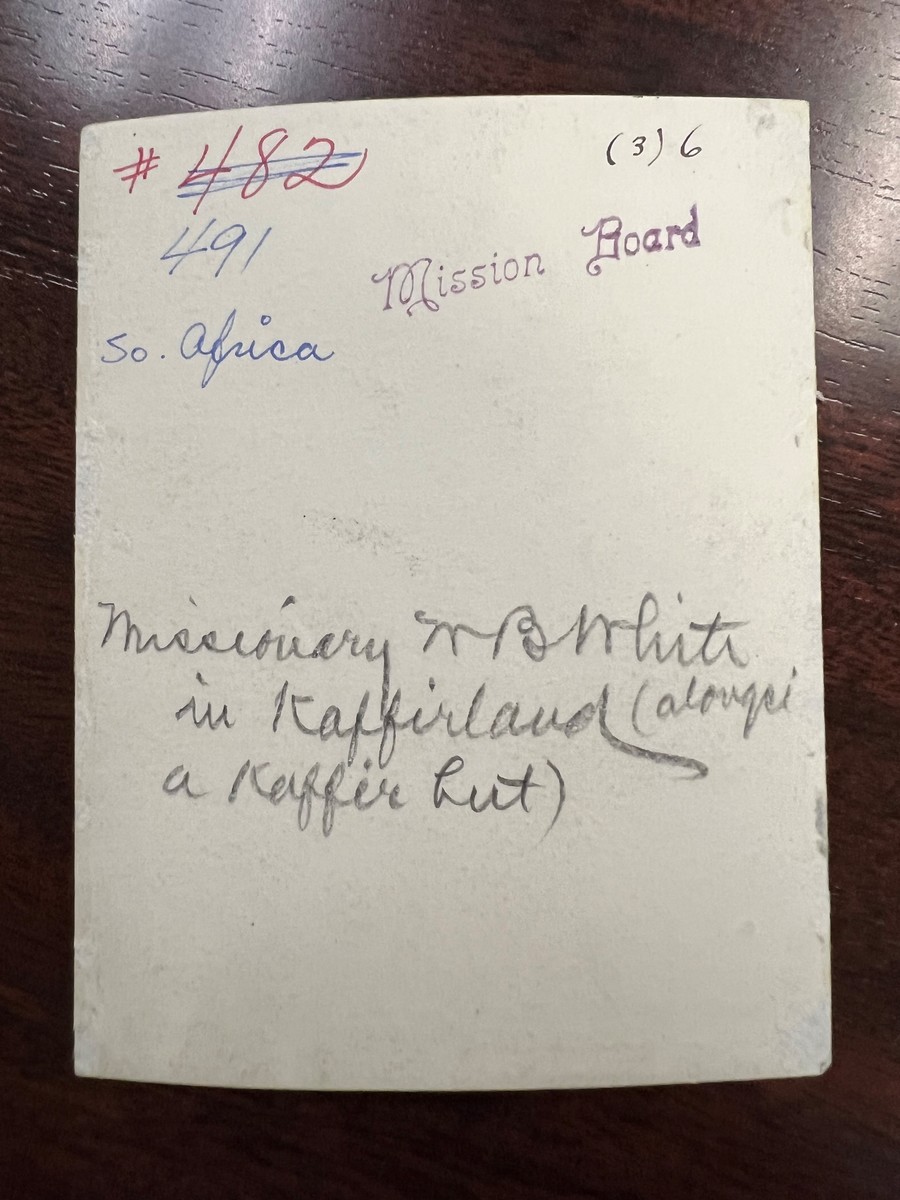 # 482
(3) 6
491
Mission Board
So. Africa
Missionary W B White
in Kaffirland (alongsi
a Kaffir hut)